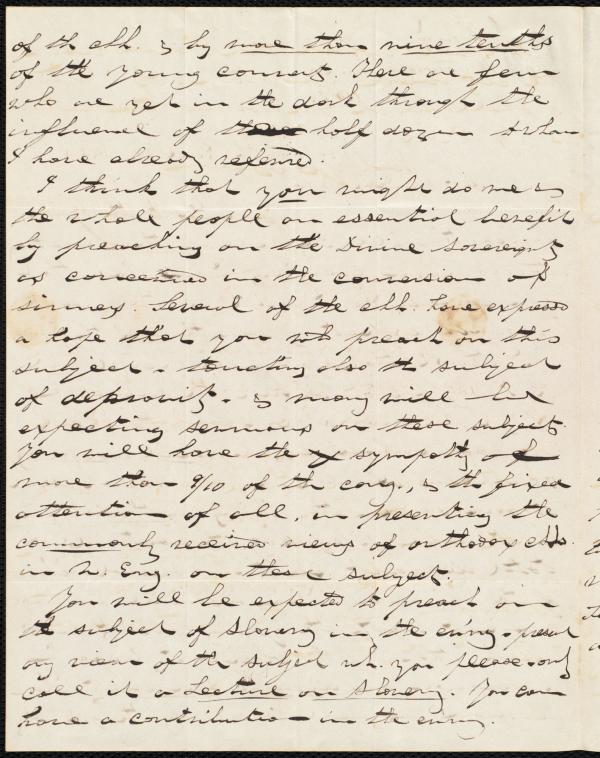 of th chh. & by more than nine tenths
of the young converts. There are few
who are yet in the dark through the
influence of half dozen to whom
I have already referred.
I think that you might do me &
the whole people an essential benefit
by preaching on the Divine Sovereignty
as concerned in the conversion of
sinners. Several of the chh. have expressed
a hope that you wd preach on this
subject - touching also th subject
of depravity. & many will be
expecting sermons on these subjects.
You will have the sympathy of
more than 9/10 of th cong., & th fixed
attention of all, in presenting the
commonly received views of orthodox chhs.
in N. Eng. on these subject.
You will be expected to preach on
th subject of Slavery in the eve'ng - present
any view of th subject wh. you please - only
call it a Lecture on Slavery. You can
have a contribution in the eve'ng.